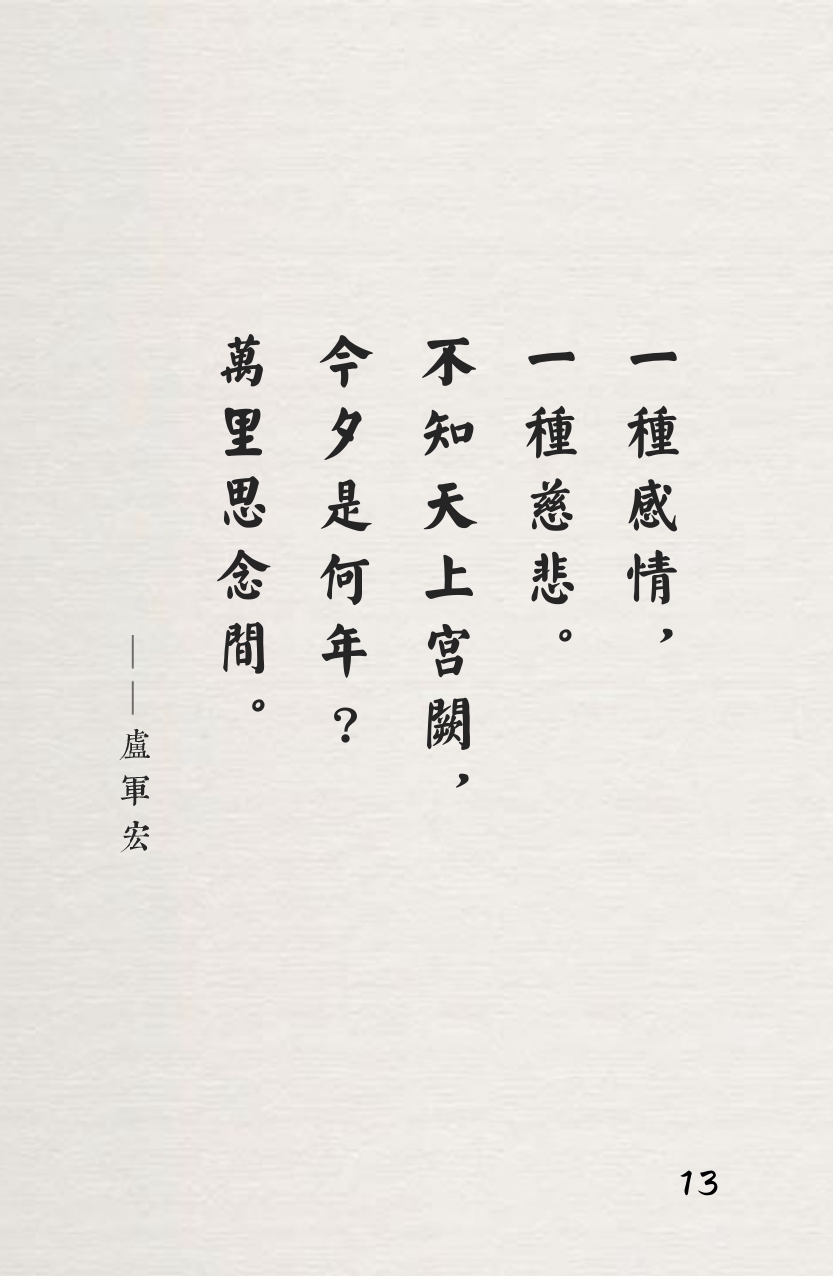 一種感情，
一種慈悲。
不知天上宮闕，
今夕是何年？
萬里思念間。
——盧軍宏
13